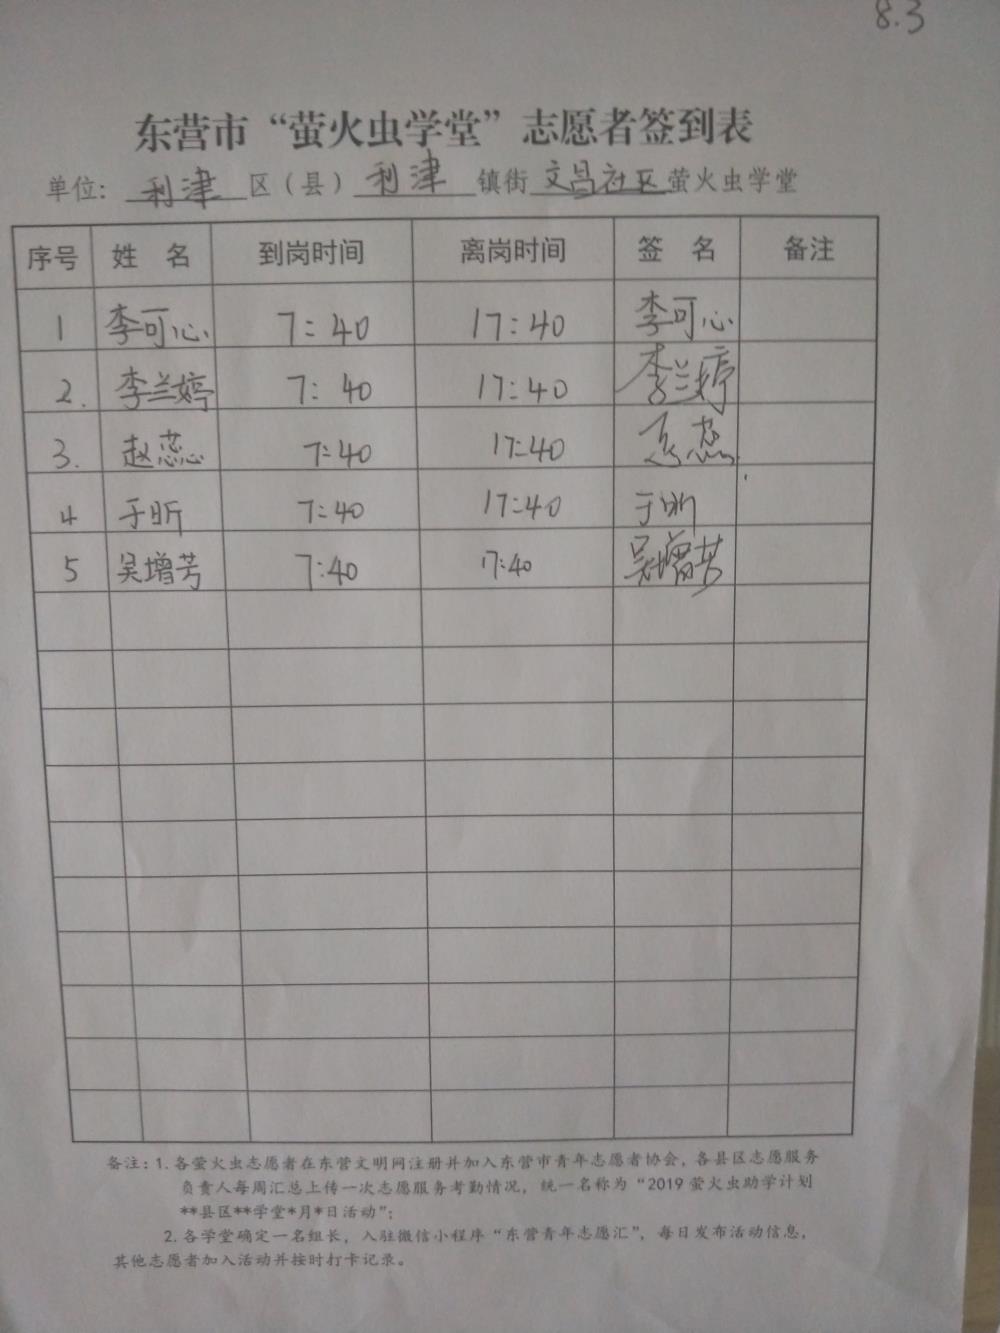 8.3
东营市“萤火虫学堂”志愿者签到表
单位: 利津 区（县） 利津 镇街 文昌社区 萤火虫学堂
序号 姓 名 到岗时间 离岗时间 签 名 备注
1 李可心 7:40 17:40 李可心
2. 李兰婷 7:40 17:40 李兰婷
3. 赵蕊 7:40 17:40 赵蕊
4 于昕 7:40 17:40 于昕
5 吴增芳 7:40 17:40 吴增芳
备注：1.各萤火虫志愿者在东营文明网注册并加入东营市青年志愿者协会，各县区志愿服务
负责人每周汇总上传一次志愿服务考勤情况，统一名称为“2019萤火虫助学计划
**县区**学堂*月*日活动”；
2.各学堂确定一名组长，入驻微信小程序“东营青年志愿汇”，每日发布活动信息，
其他志愿者加入活动并按时打卡记录。